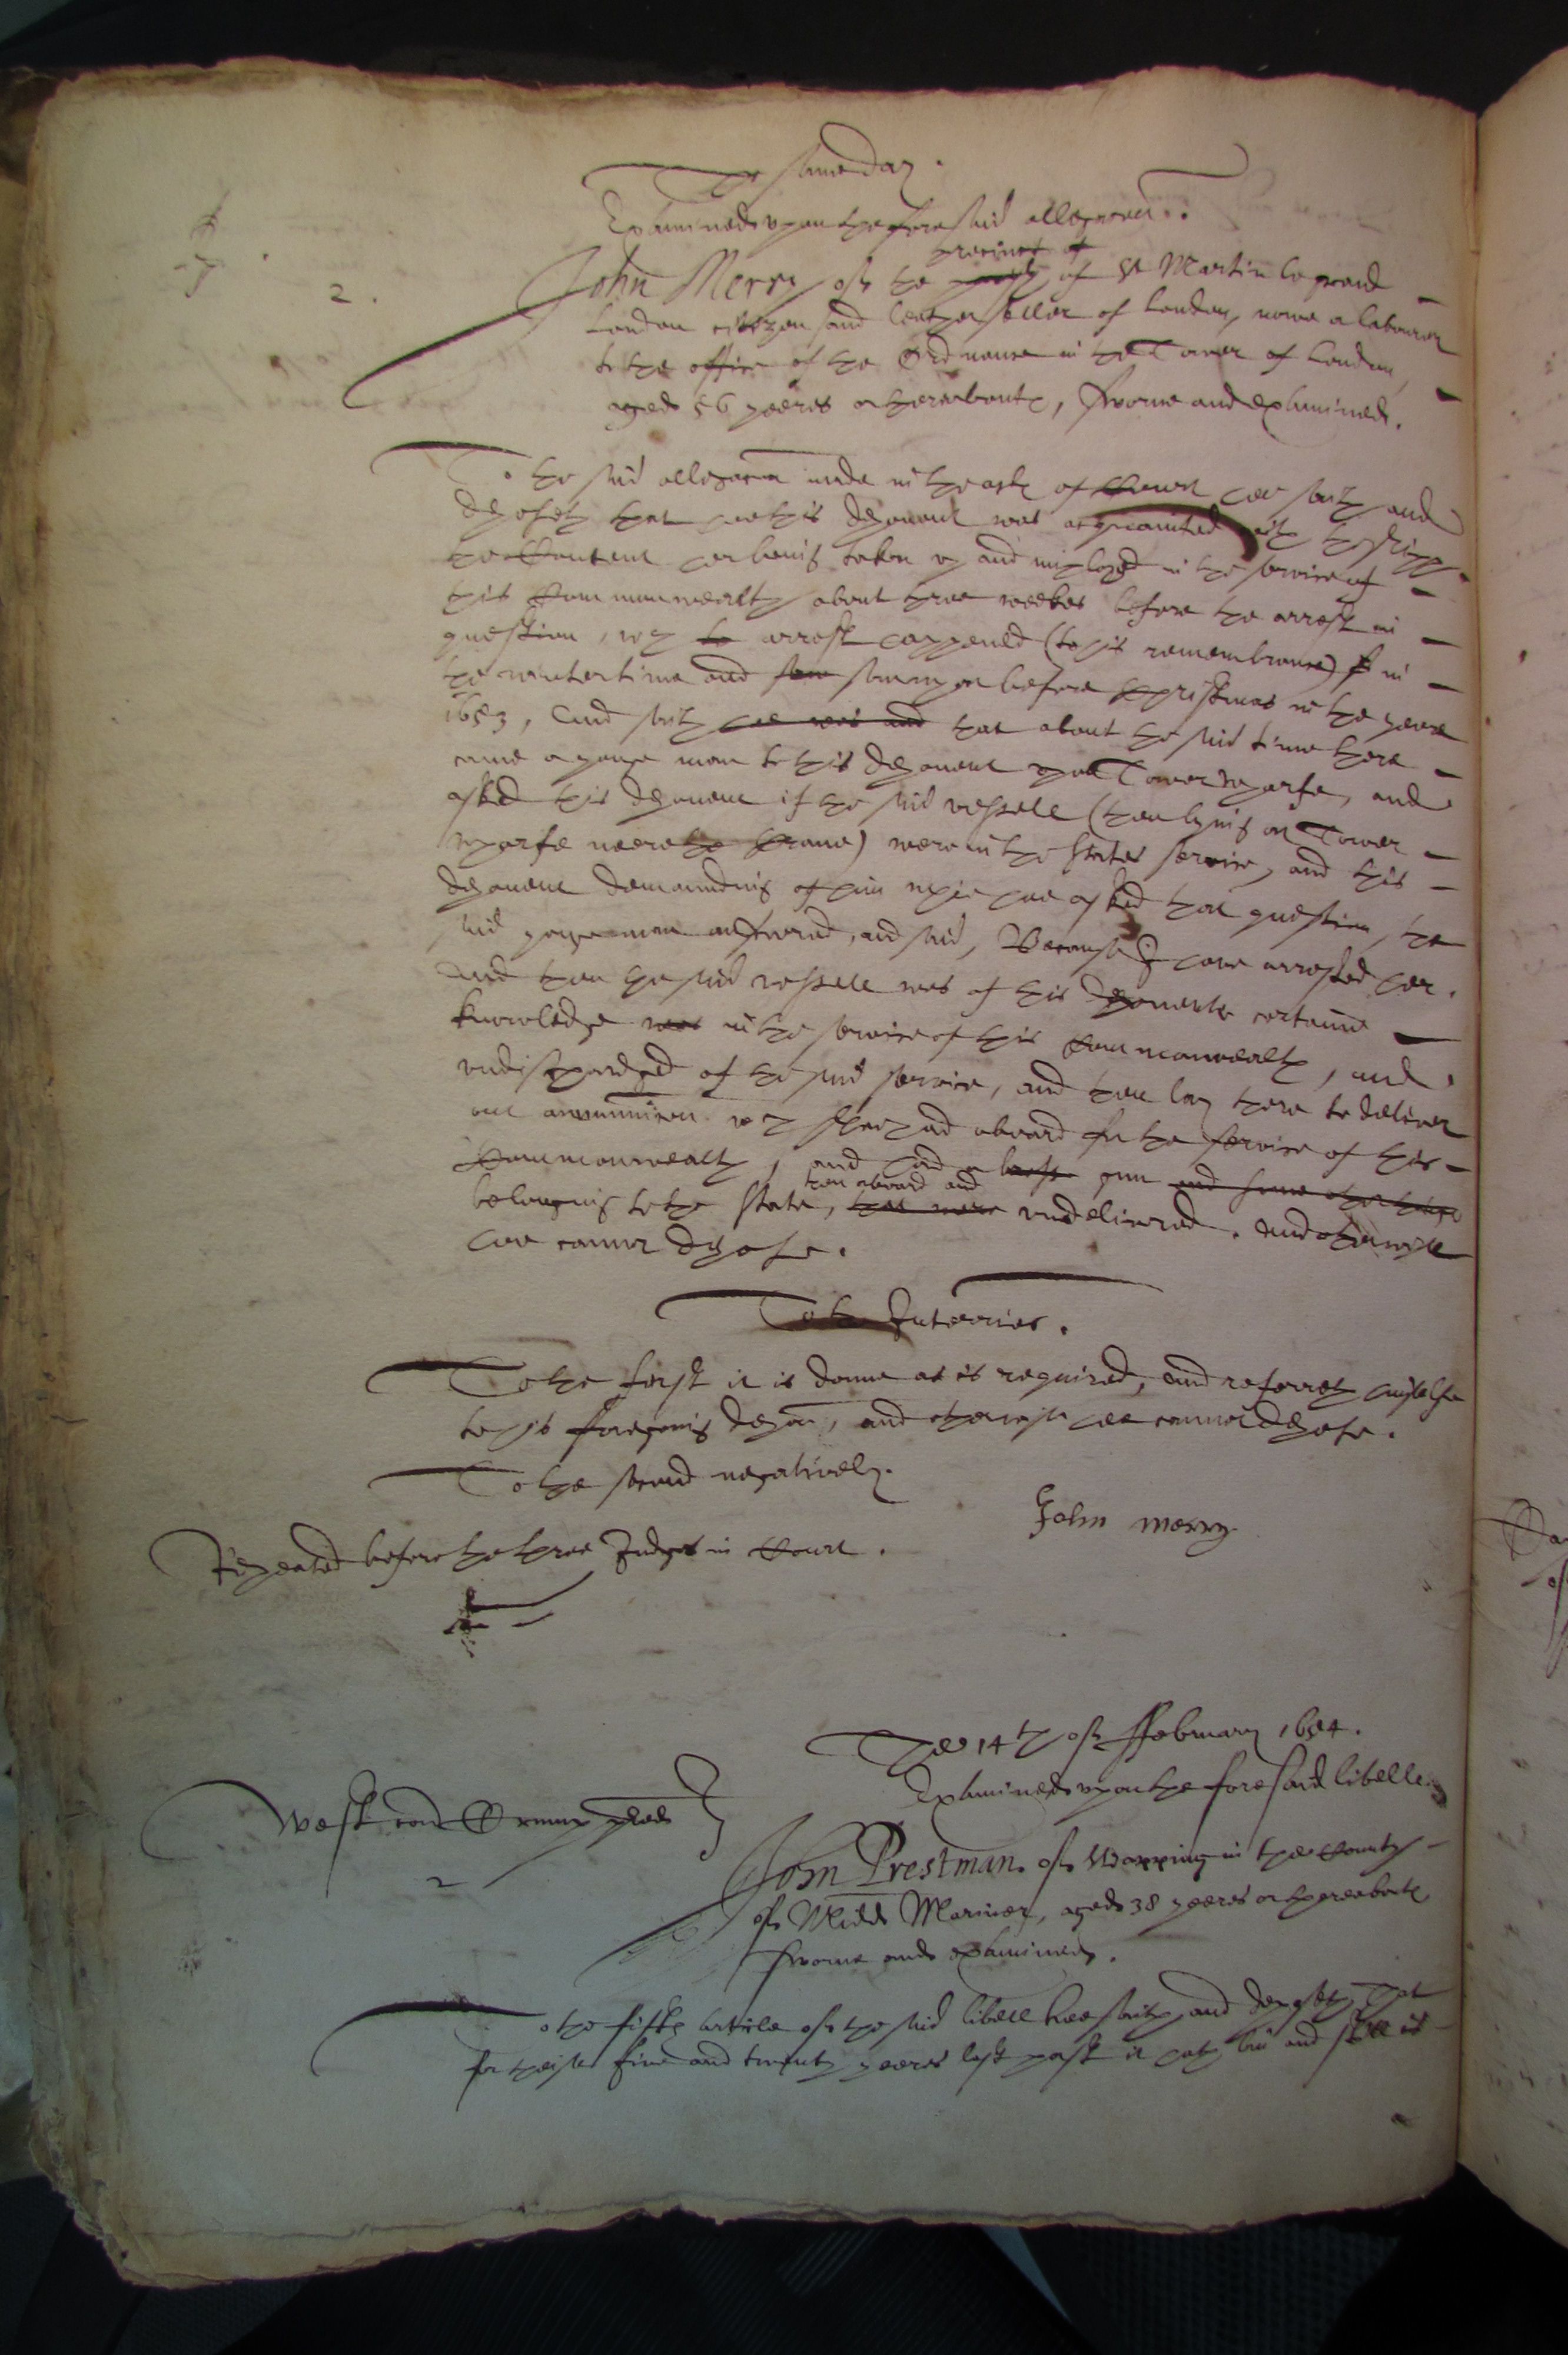 The same day.
Examined upon the foresaid allegacon.
2.
John Merry of the precinct of St Martin le grand
London citizen and leatherseller of London, nowe a labourer
to the office of the Ordnance in the Tower of London,
aged 56 yeeres or thereabouts, sworne and examined.
To the said allegacon made in the acts of Court hee saith and
deposeth that hee this deponent was acquainted with the shipp
the Content her being taken up and imployed in the service of
this Commonwealth about three weekes before the arrest in
question, wch arrest happened (to his remembrance) in
the winter time and somwhat before Christmas in the yeere
1653, And saith hee was and that about the said time there
came a yonge man to this deponent upon Tower wharfe, and
asked this deponent if the said vessell (then lying at Tower
wharfe neere the Crane) were in the States service, and this
deponent demaunding of him why hee asked that question, the
said yonge man answered, and said, Because I have arrested her.
And then the said vessell was of this deponents certaine
knowledge was in the service of this Commonwealth, and
undischardged of the said service, and then lay there to deliver
out ammunition wch shee had aboard for the service of this
Commonwealth, and had a brasse gun and some other things
then aboard and
belonging to the State, that were undelivered. And otherwise
hee cannot depose.
To the Interries.
To the first it is donne as is required, and referreth himselfe
to his foregoing depon, and otherwise hee cannot depose.
To the second negatively.
John Merry
Repeated before the three Judges in Court.
The 14th of February 1654.
Examined upon the foresaid libelle.
West con
2
John Prestman of Wapping in the County
of Midds Mariner, aged 38 yeeres or thereabouts
sworne and examined.
To the fifth article of the said libell hee saith and deposeth That
for theise five and twenty yeeres last past it hath bin and still is